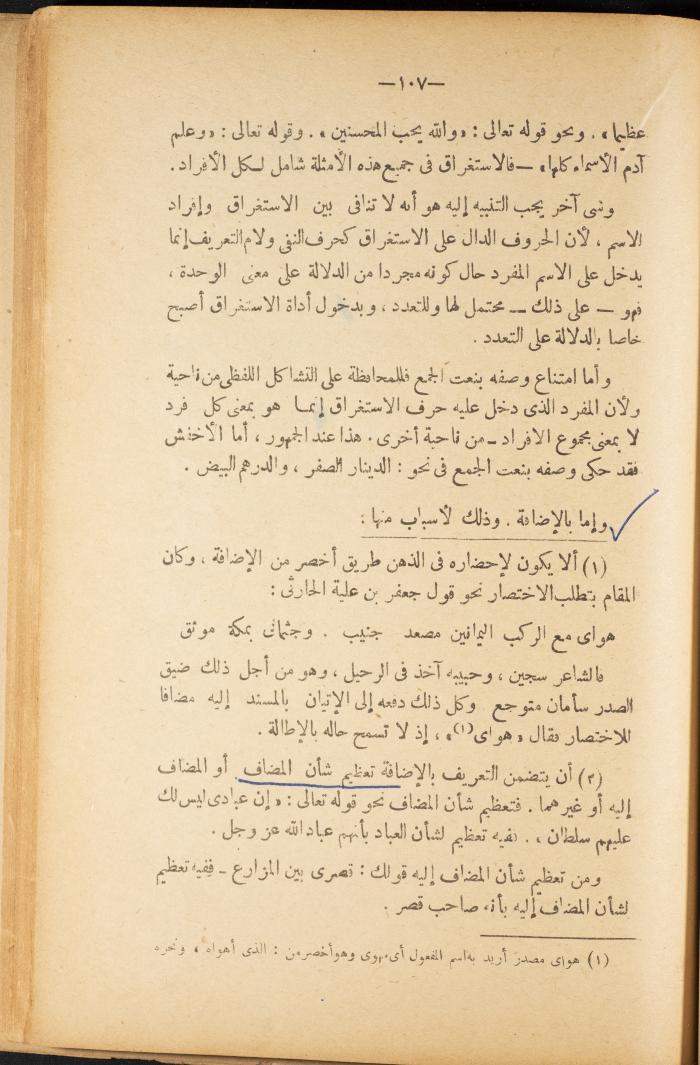 —١٠٧—
عظيما» . ونحو قوله تعالى : «والله يحب المحسنين» . وقوله تعالى : «وعلم
آدم الأسماء كلها» — فالاستغراق فى جميع هذه الأمثلة شامل لكل الأفراد .
وشى آخر يجب التنبيه إليه هو أنه لا تنافى بين الاستغراق وإفراد
الاسم ، لأن الحروف الدال على الاستغراق كحرف النفى ولام التعريف إنما
يدخل على الاسم المفرد حال كونه مجردا من الدلالة على معنى الوحدة ،
فهو — على ذلك — محتمل لها وللتعدد ، وبدخول أداة الاستغراق أصبح
خاصا بالدلالة على التعدد .
وأما امتناع وصفه بنعت الجمع فللمحافظة على التشاكل اللفظى من ناحية
ولأن المفرد الذى دخل عليه حرف الاستغراق إنما هو بمعنى كل فرد
لا بمعنى مجموع الافراد - من ناحية أخرى . هذا عند الجمهور ، أما الأخفش
فقد حكى وصفه بنعت الجمع فى نحو : الدينار الصفر ، والدرهم البيض .
وإما بالإضافة . وذلك لأسباب منها :
(١) ألا يكون لإحضاره فى الذهن طريق أخصر من الإضافة ، وكان
المقام يتطلب الاختصار نحو قول جعفر بن علية الحارثى :
هواى مع الركب اليمانين مصعد جنيب . وجثمانى بمكة موثق
فالشاعر سجين ، وحبيبه آخذ فى الرحيل ، وهو من أجل ذلك ضيق
الصدر سأمان متوجع وكل ذلك دفعه إلى الإتيان بالمسند إليه مضافا
للاختصار فقال «هواى(١)» ، إذ لا تسمح حاله بالإطالة .
(٢) أن يتضمن التعريف بالإضافة تعظيم شأن المضاف . أو المضاف
إليه أو غيرهما . فتعظيم شأن المضاف نحو قوله تعالى : «إن عبادى ليس لك
عليهم سلطان » . ففيه تعظيم لشأن العباد بأنهم عباد الله عز وجل .
ومن تعظيم شأن المضاف إليه قولك : قصرى بين المزارع - ففيه تعظيم
لشأن المضاف إليه بأنه صاحب قصر .
(١) هواى مصدر أريد به اسم المفعول أى مهوى وهو أخصر من : الذى أهواه ، ونحوه